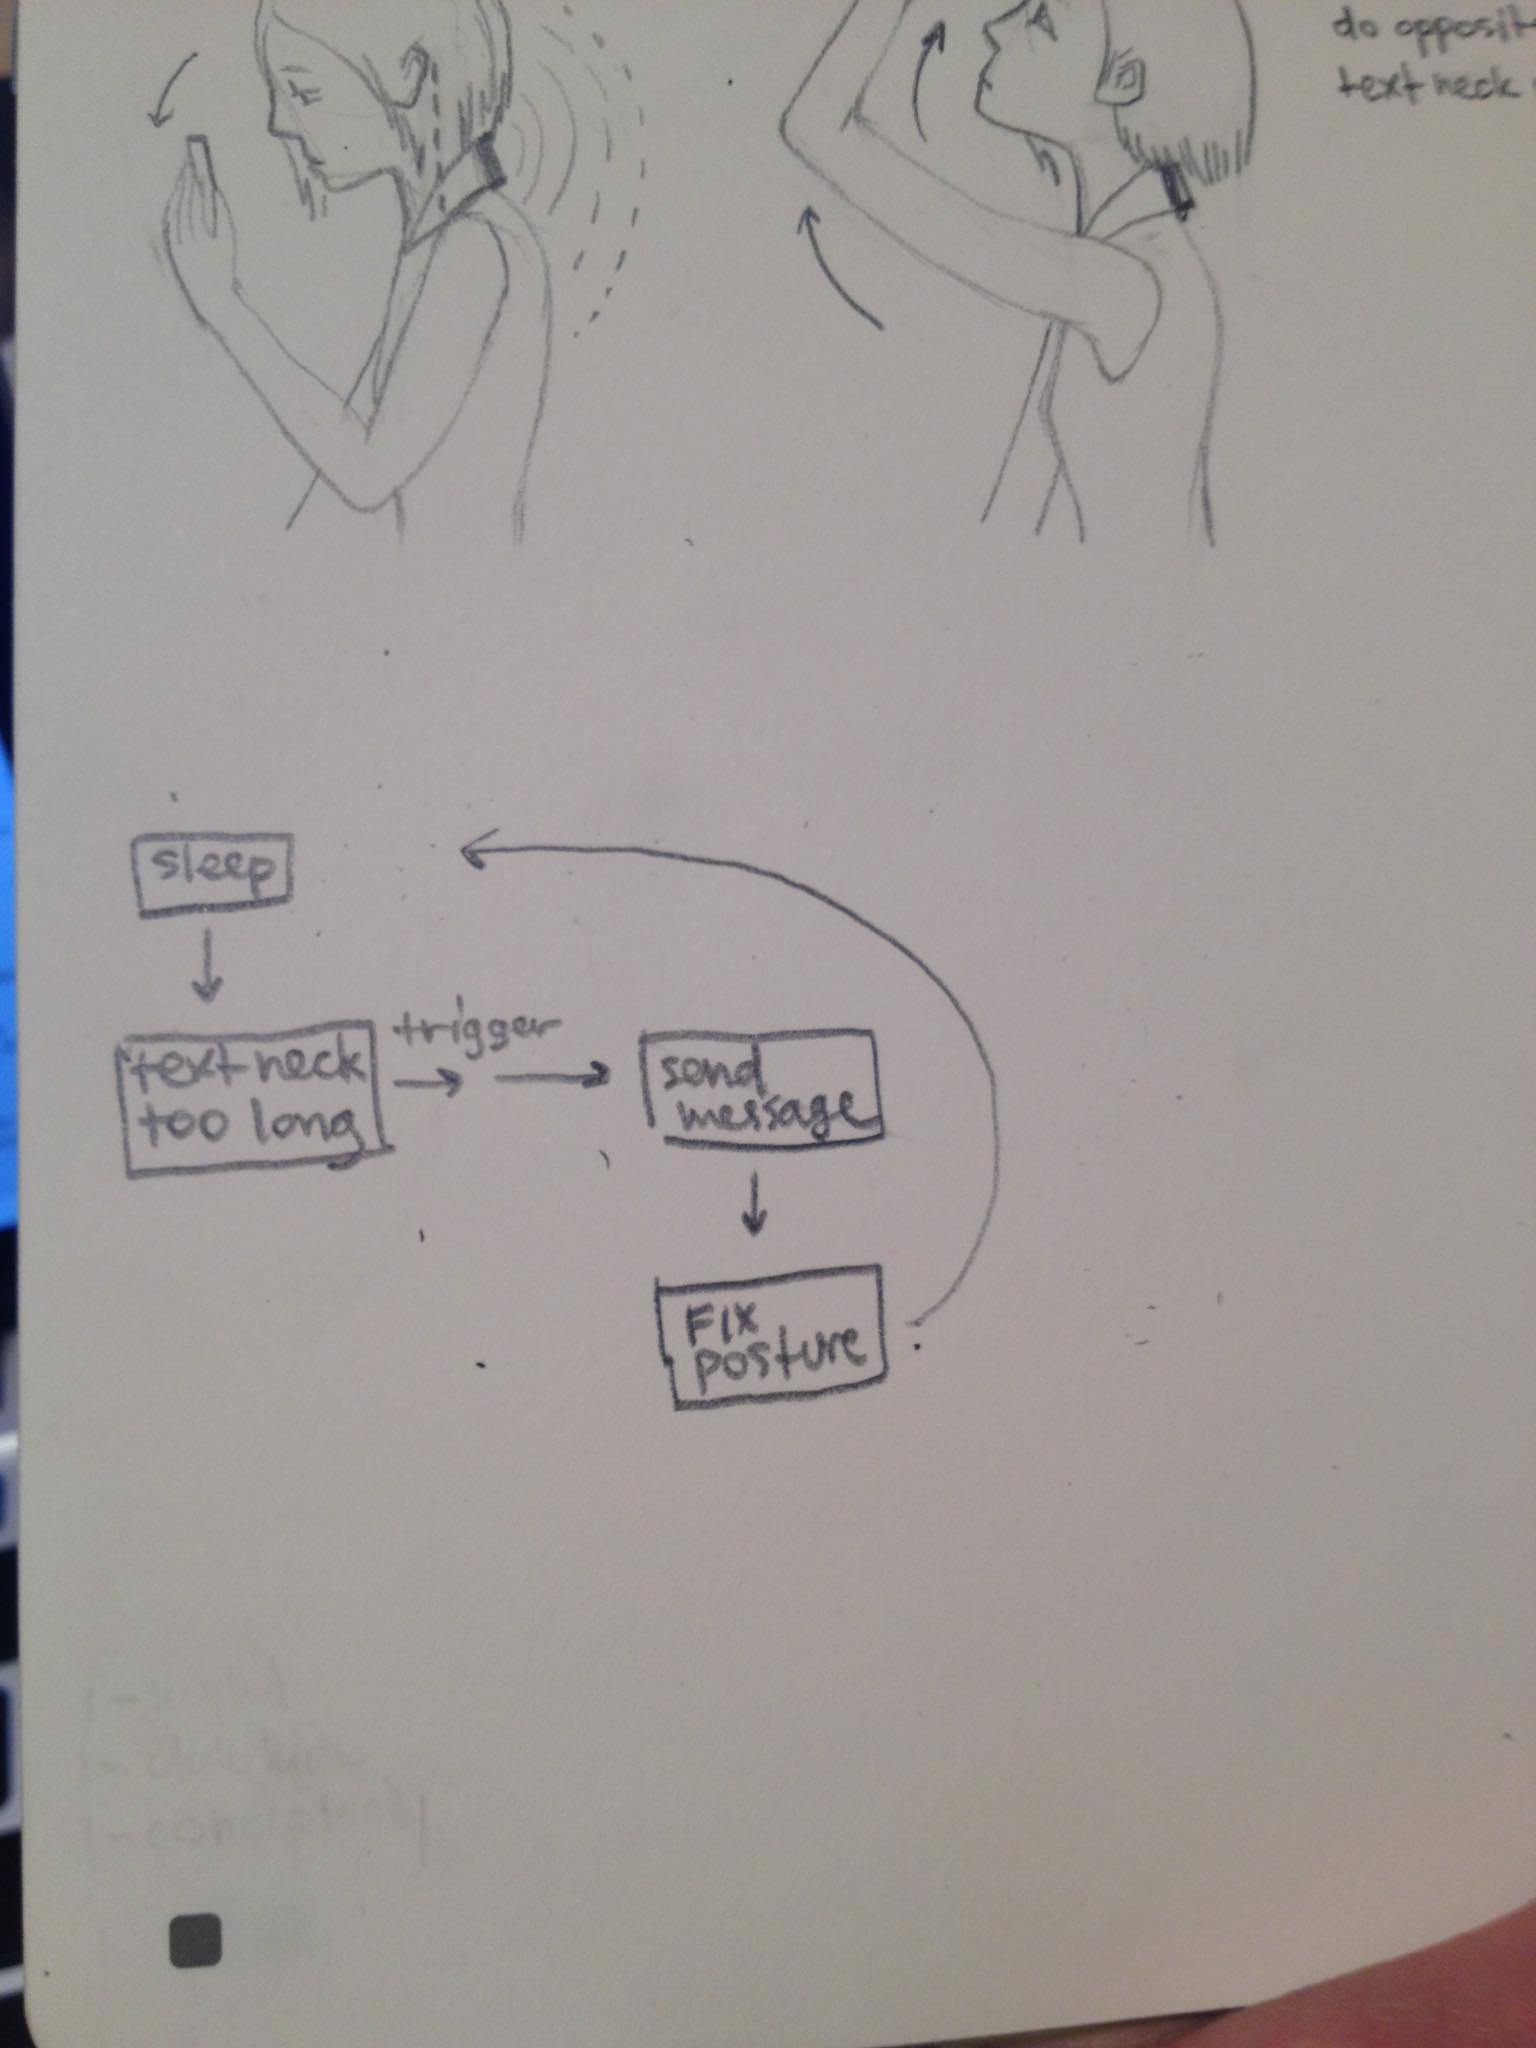 do opposit
text neck
sleep
text neck
too long
trigger
send
message
FIX
posture